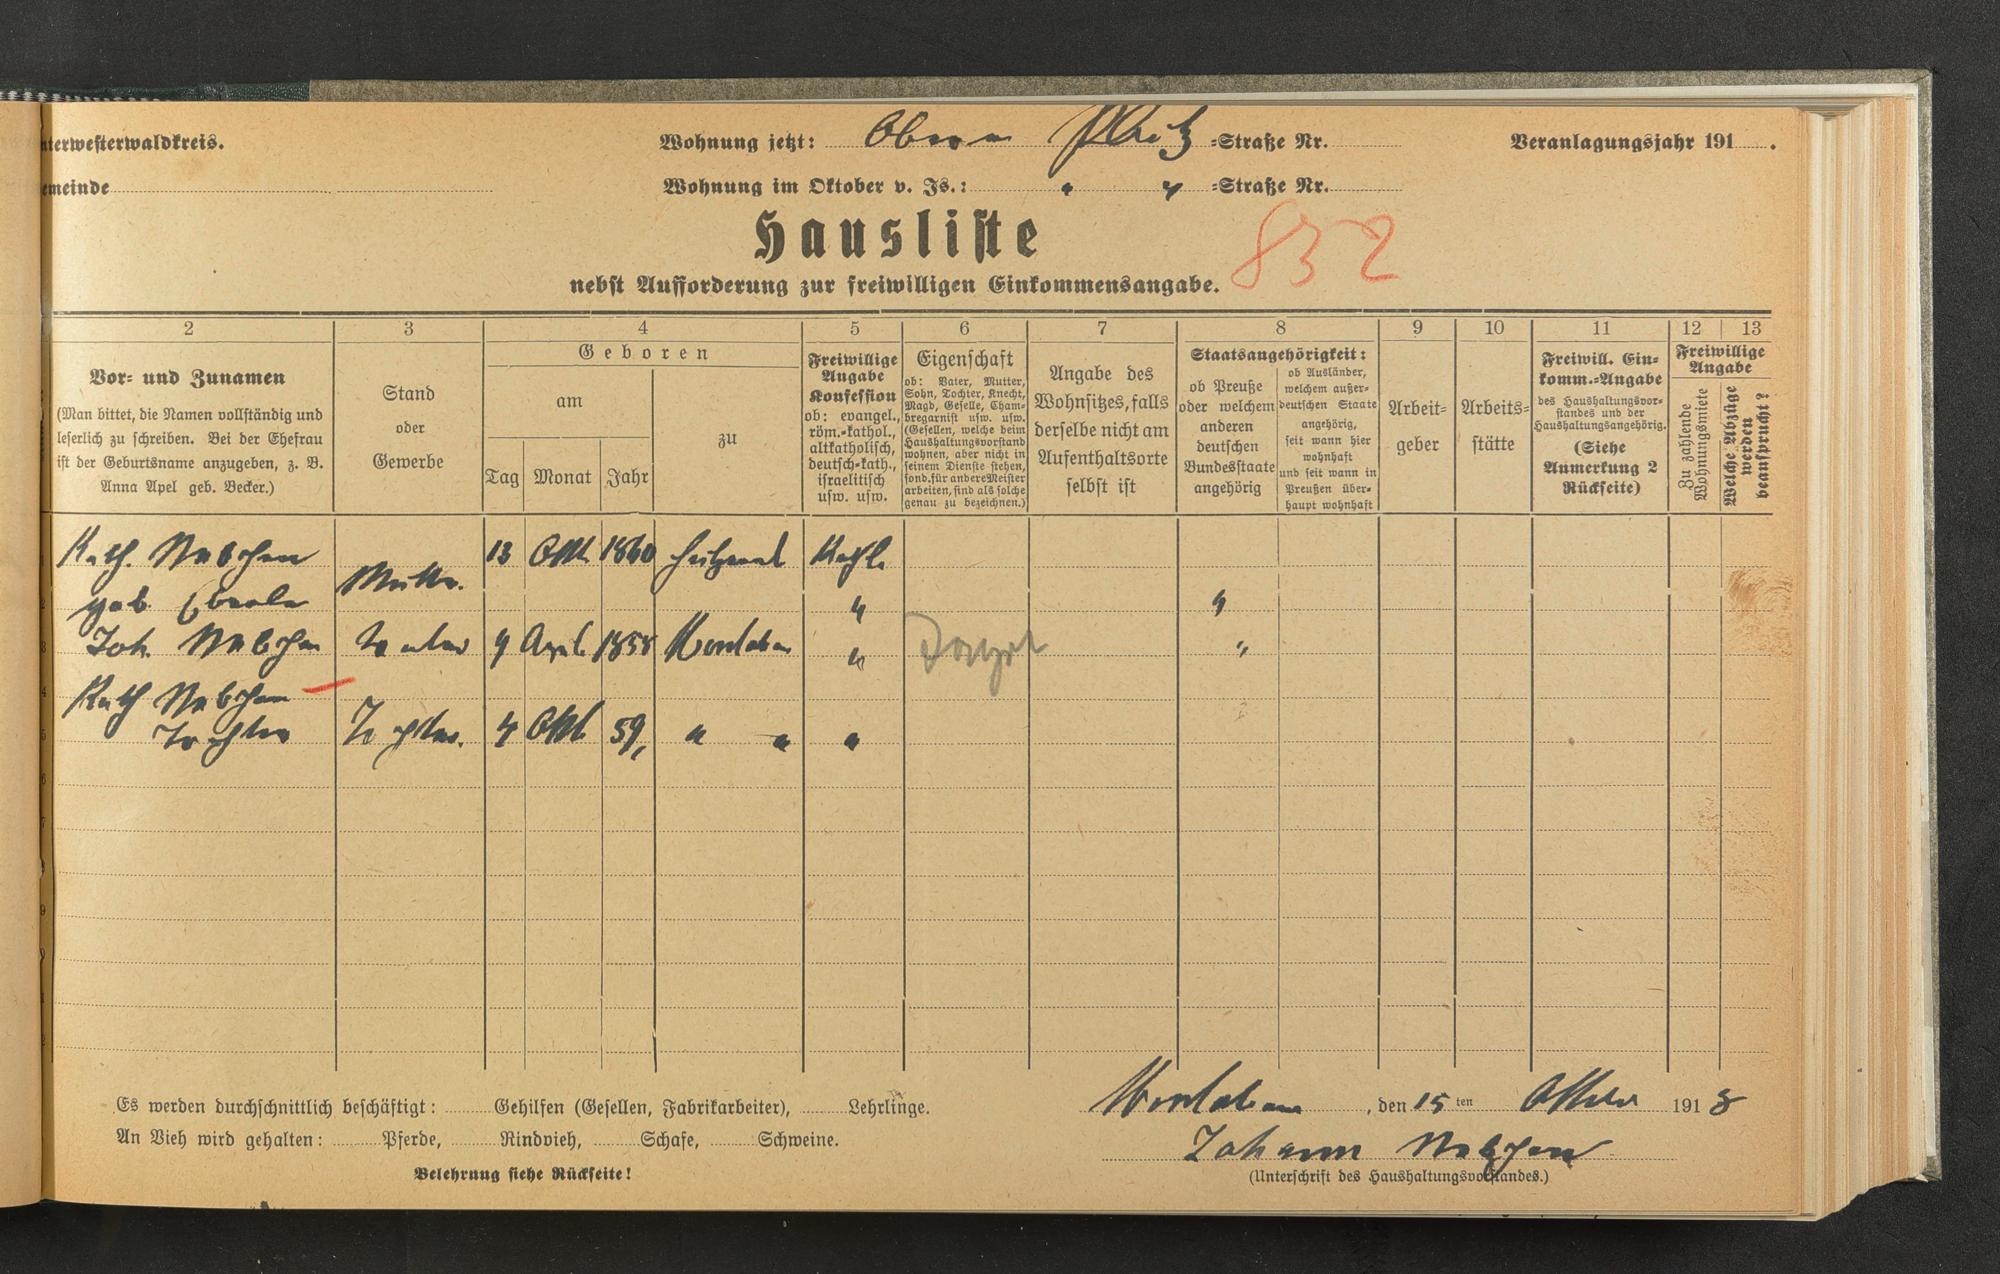 nterwesterwaldkreis.
Wohnung jetzt: Obern Platz -Straße Nr.
Veranlagungsjahr 191 .
emeinde
Wohnung im Oktober v. Js.: " " -Straße Nr.
Hausliste
832
nebst Aufforderung zur freiwilligen Einkommensangabe.
2 3 4 5 6 7 8 9 10 11 12 13
Vor- und Zunamen
(Man bittet, die Namen vollständig und
leserlich zu schreiben. Bei der Ehefrau
ist der Geburtsname anzugeben, z. B.
Anna Apel geb. Becker.)
Stand
oder
Gewerbe
Geboren
am
Tag Monat Jahr
zu
Freiwillige
Angabe
Konfession
ob: evangel.,
röm.-kathol.,
altkatholisch,
deutsch-kath.,
israelitisch
usw. usw.
Eigenschaft
ob: Vater, Mutter,
Sohn, Tochter, Knecht,
Magd, Geselle, Cham-
bregarnist usw. usw.
(Gesellen, welche beim
Haushaltungsvorstand
wohnen, aber nicht in
seinem Dienste stehen,
sond. für andere Meister
arbeiten, sind als solche
genau zu bezeichnen.)
Angabe des
Wohnsitzes, falls
derselbe nicht am
Aufenthaltsorte
selbst ist
Staatsangehörigkeit:
ob Preuße
oder welchem
anderen
deutschen
Bundesstaate
angehörig
ob Ausländer,
welchem außer-
deutschen Staate
angehörig,
seit wann hier
wohnhaft
und seit wann in
Preußen über-
haupt wohnhaft
Arbeit-
geber
Arbeits-
stätte
Freiwill. Ein-
komm.-Angabe
des Haushaltungsvor-
standes und der
Haushaltungsangehörig.
(Siehe
Anmerkung 2
Rückseite)
Freiwillige
Angabe
Zu zahlende
Wohnungsmiete
Welche Abzüge
werden
beansprucht?
Kath. 13 Okt 1860 Kath.
geb. Mutter. " "
Joh. Vater 9 April 1858 Montabaur " "
Kath
Tochter Tochter. 4 Okt 59, " " "
Es werden durchschnittlich beschäftigt: Gehilfen (Gesellen, Fabrikarbeiter), Lehrlinge.
Montabaur, den 15 ten Oktober 1918
An Vieh wird gehalten: Pferde, Rindvieh, Schafe, Schweine.
Johann
Belehrung siehe Rückseite!
(Unterschrift des Haushaltungsvorstandes.)